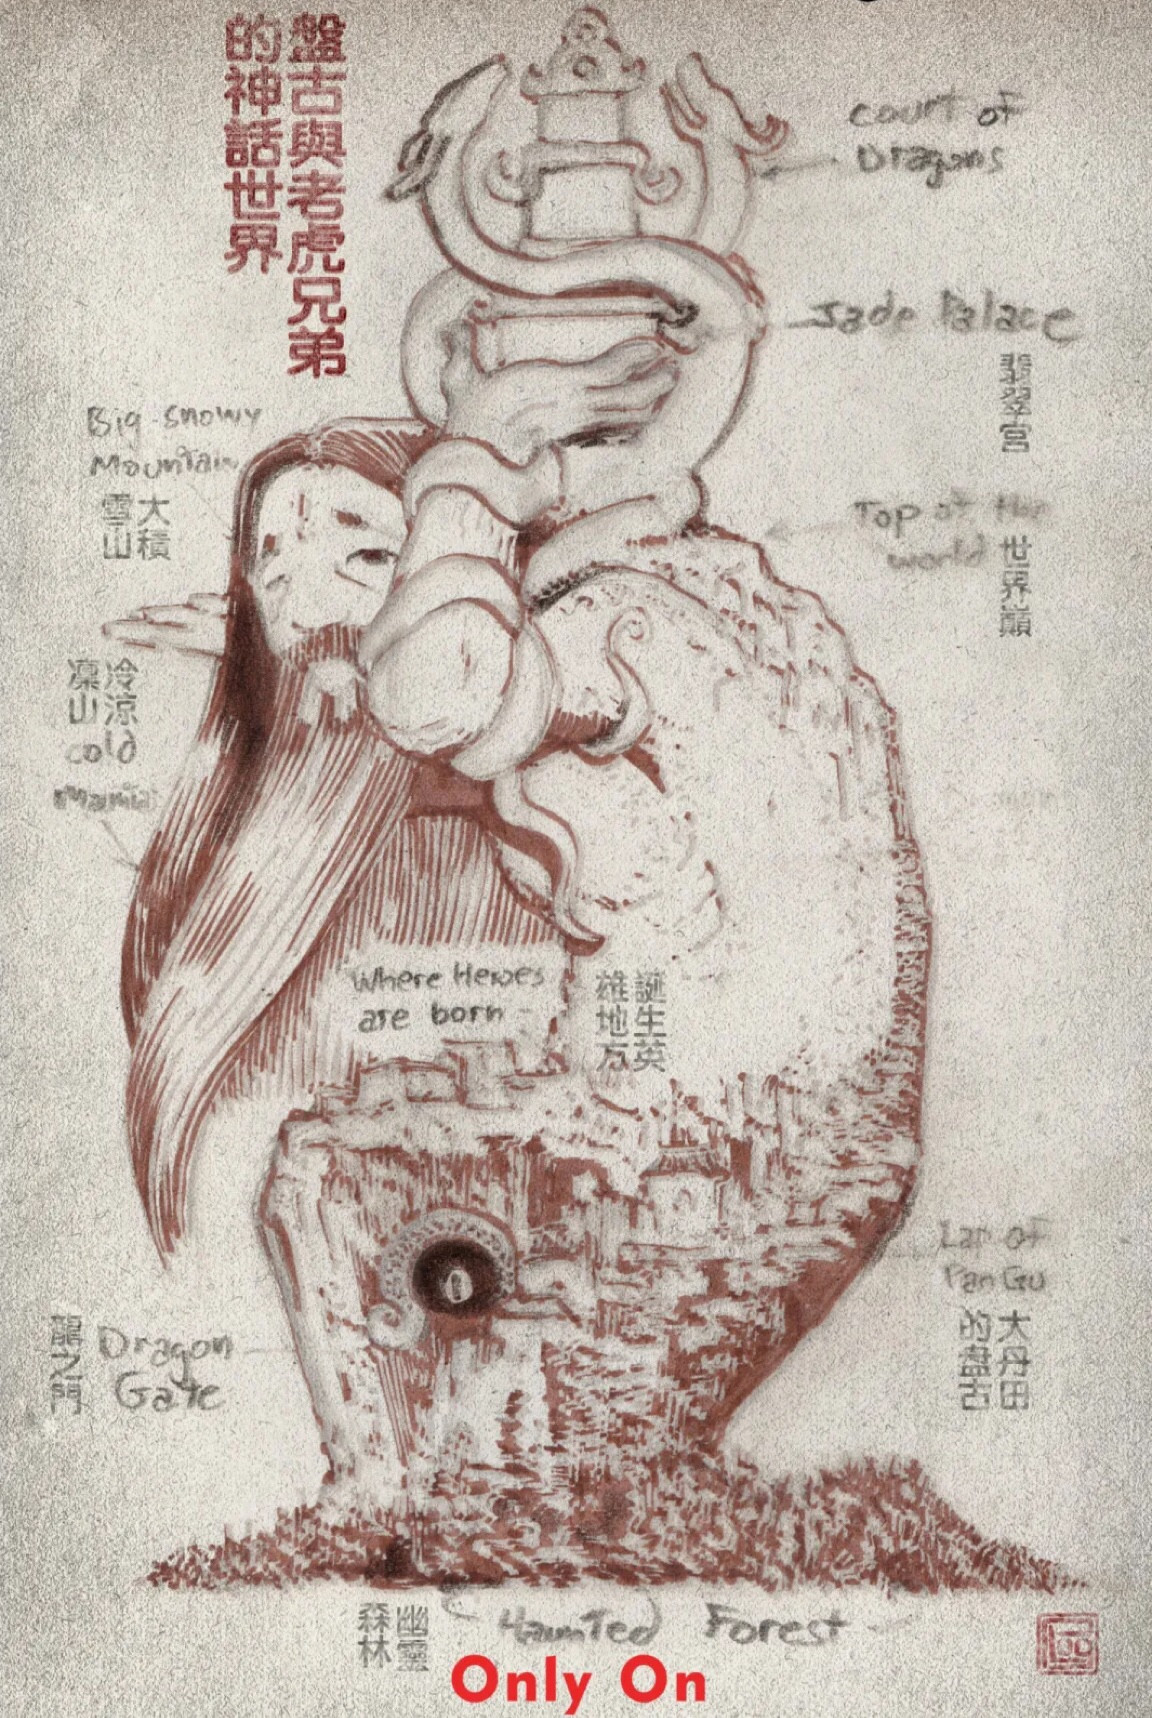 盤古與老虎兄弟
的神話世界
court of
Dragons
Jade Palace
翡翠宮
Big Snowy
Mountain
大積
雪山
Top of the
world
世界巔
冷涼
凜山
cold
Where Heroes
are born
誕生英
雄地方
Lap of
Pan Gu
大丹田
的盘古
龍之門
Dragon
Gate
幽靈
森林
Haunted Forest
Only On